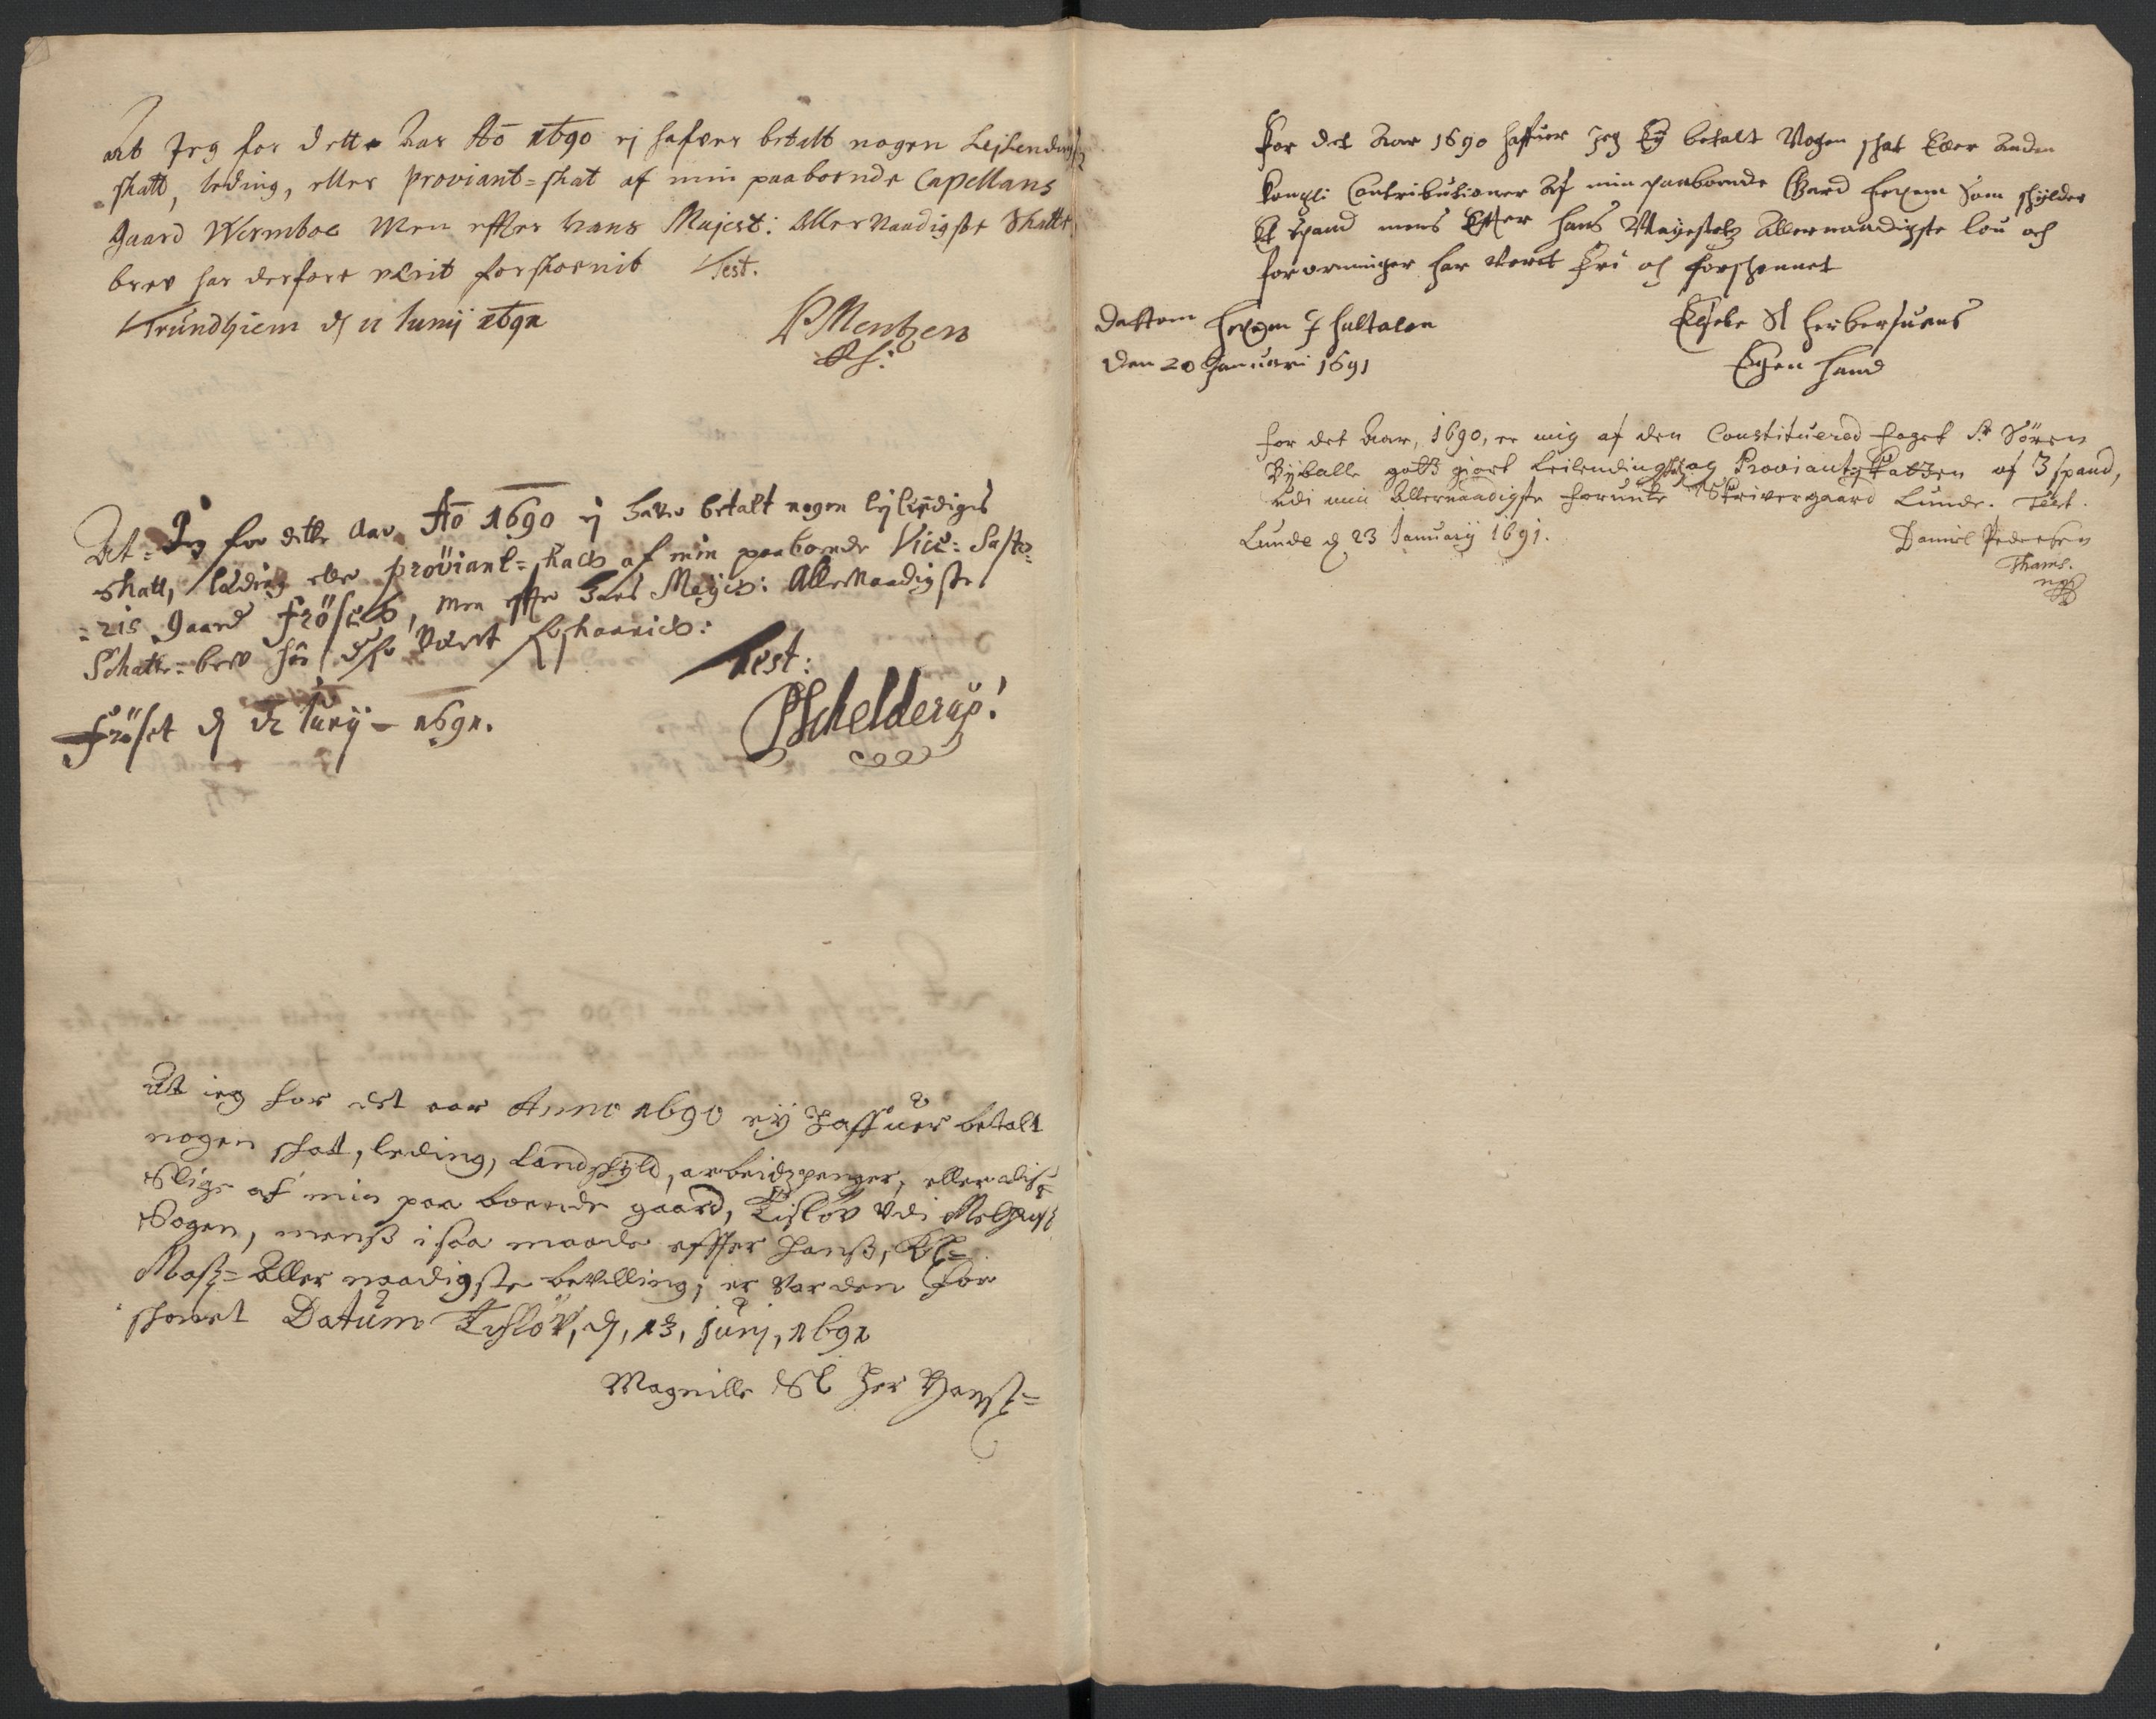 at Jeg for dette Aar Ao 1690 ej hafver betalt nogen Lejlendings
skatt, leding, eller proviant-skat af min paaboende Capellans
gaard Wermboe Men effter hans Majest: Aller Naadigste Skatte
brev har derfore verit forskoenit Test.
Trundhiem d 11 Junij 1691
P Mentzen
At Jeg for dette Aar Ao 1690 ej haver betalt nogen lejlendigs
skatt, leding eller proviant-skatt af min paaboende Vice-Pasto-
ris gaard Fröset, men effter hans Majes: AllerNaadigste
Schatte-brev har derfor værit forskaanid:
Test:
Fröset d 12 Junij 1691.
P Schelderup!
At ieg for det aar Anno 1690 eij haffuer betalt
nogen skatt, leding, Landskyld, arbeidzpenger, eller
slige af min paa boende gaard, Kislöv Vdi Melhuus
Sogen, menß i saa maade effter Hanß, Kl=
Maß= Aller naadigste bevelling, er vorden for
skonet Datum Kislöv, d, 13, junj, 1691
Magnille Sl Her Hanß=
For det Aar 1690 haffuer jeg Ey betalt Nogen skat Eller Anden
kongli Contributioner Af min paaboende Gaard Hexem Som skylder
Et Spand mens Effter hans Mayestetz Allernaadigste lou och
forordninger har verit Fri och forschonnet
Dattom Hexem J Haltalen
Den 20 Januari 1691
Sl Her
Egen Hand
For det Aar, 1690, er mig af den Constituered Foget Sr Sören
Byballe gott giort Leilendingskat og Proviantz Skatten af 3 spand,
udi min Allernaadigste Forunte Skrivergaard Lunde. Test.
Lunde d 23 Januarij 1691.
Daniel Pedersen
Thams.